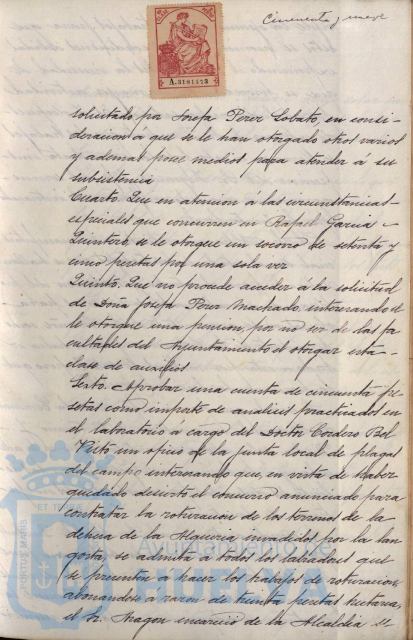 Cincuenta y nueve
A.3181423
solicitado por Josefa Perez Lobato, en consi-
deracion á que se le han otorgado otros varios
y ademas posee medios para atender á su
subsistencia
Cuarto. Que en atencion á las circunstancias
especiales que concurren en Rafael Garcia
Quintero se le otorgue un socorro de setenta y
cinco pesetas por una sola vez
Quinto. Que no procede acceder á la solicitud
de Doña Josefa Perez Machado, interesando se
le otorgue una pension, por no ser de las fa-
cultades del Ayuntamiento el otorgar esta
clase de auxilios
Sexto. Aprobar una cuenta de cincuenta pe
setas como importe de analisis practicados en
el laboratorio á cargo del Doctor Cordero Bel
Visto un oficio de la junta local de plagas
del campo interesando que, en vista de haber
quedado desierto el concurso anunciado para
contratar la roturacion de los terrenos de la
dehesa de la Alqueria invadidos por la lan
gosta, se admita á todos los labradores que
se presenten á hacer los trabajos de roturacion
abonandose á razon de treinta pesetas hectarea,
el Sr. Aragon encareció de la Alcaldia se
PORTUS MARIS
ET T
Ayuntamiento de
HUELVA